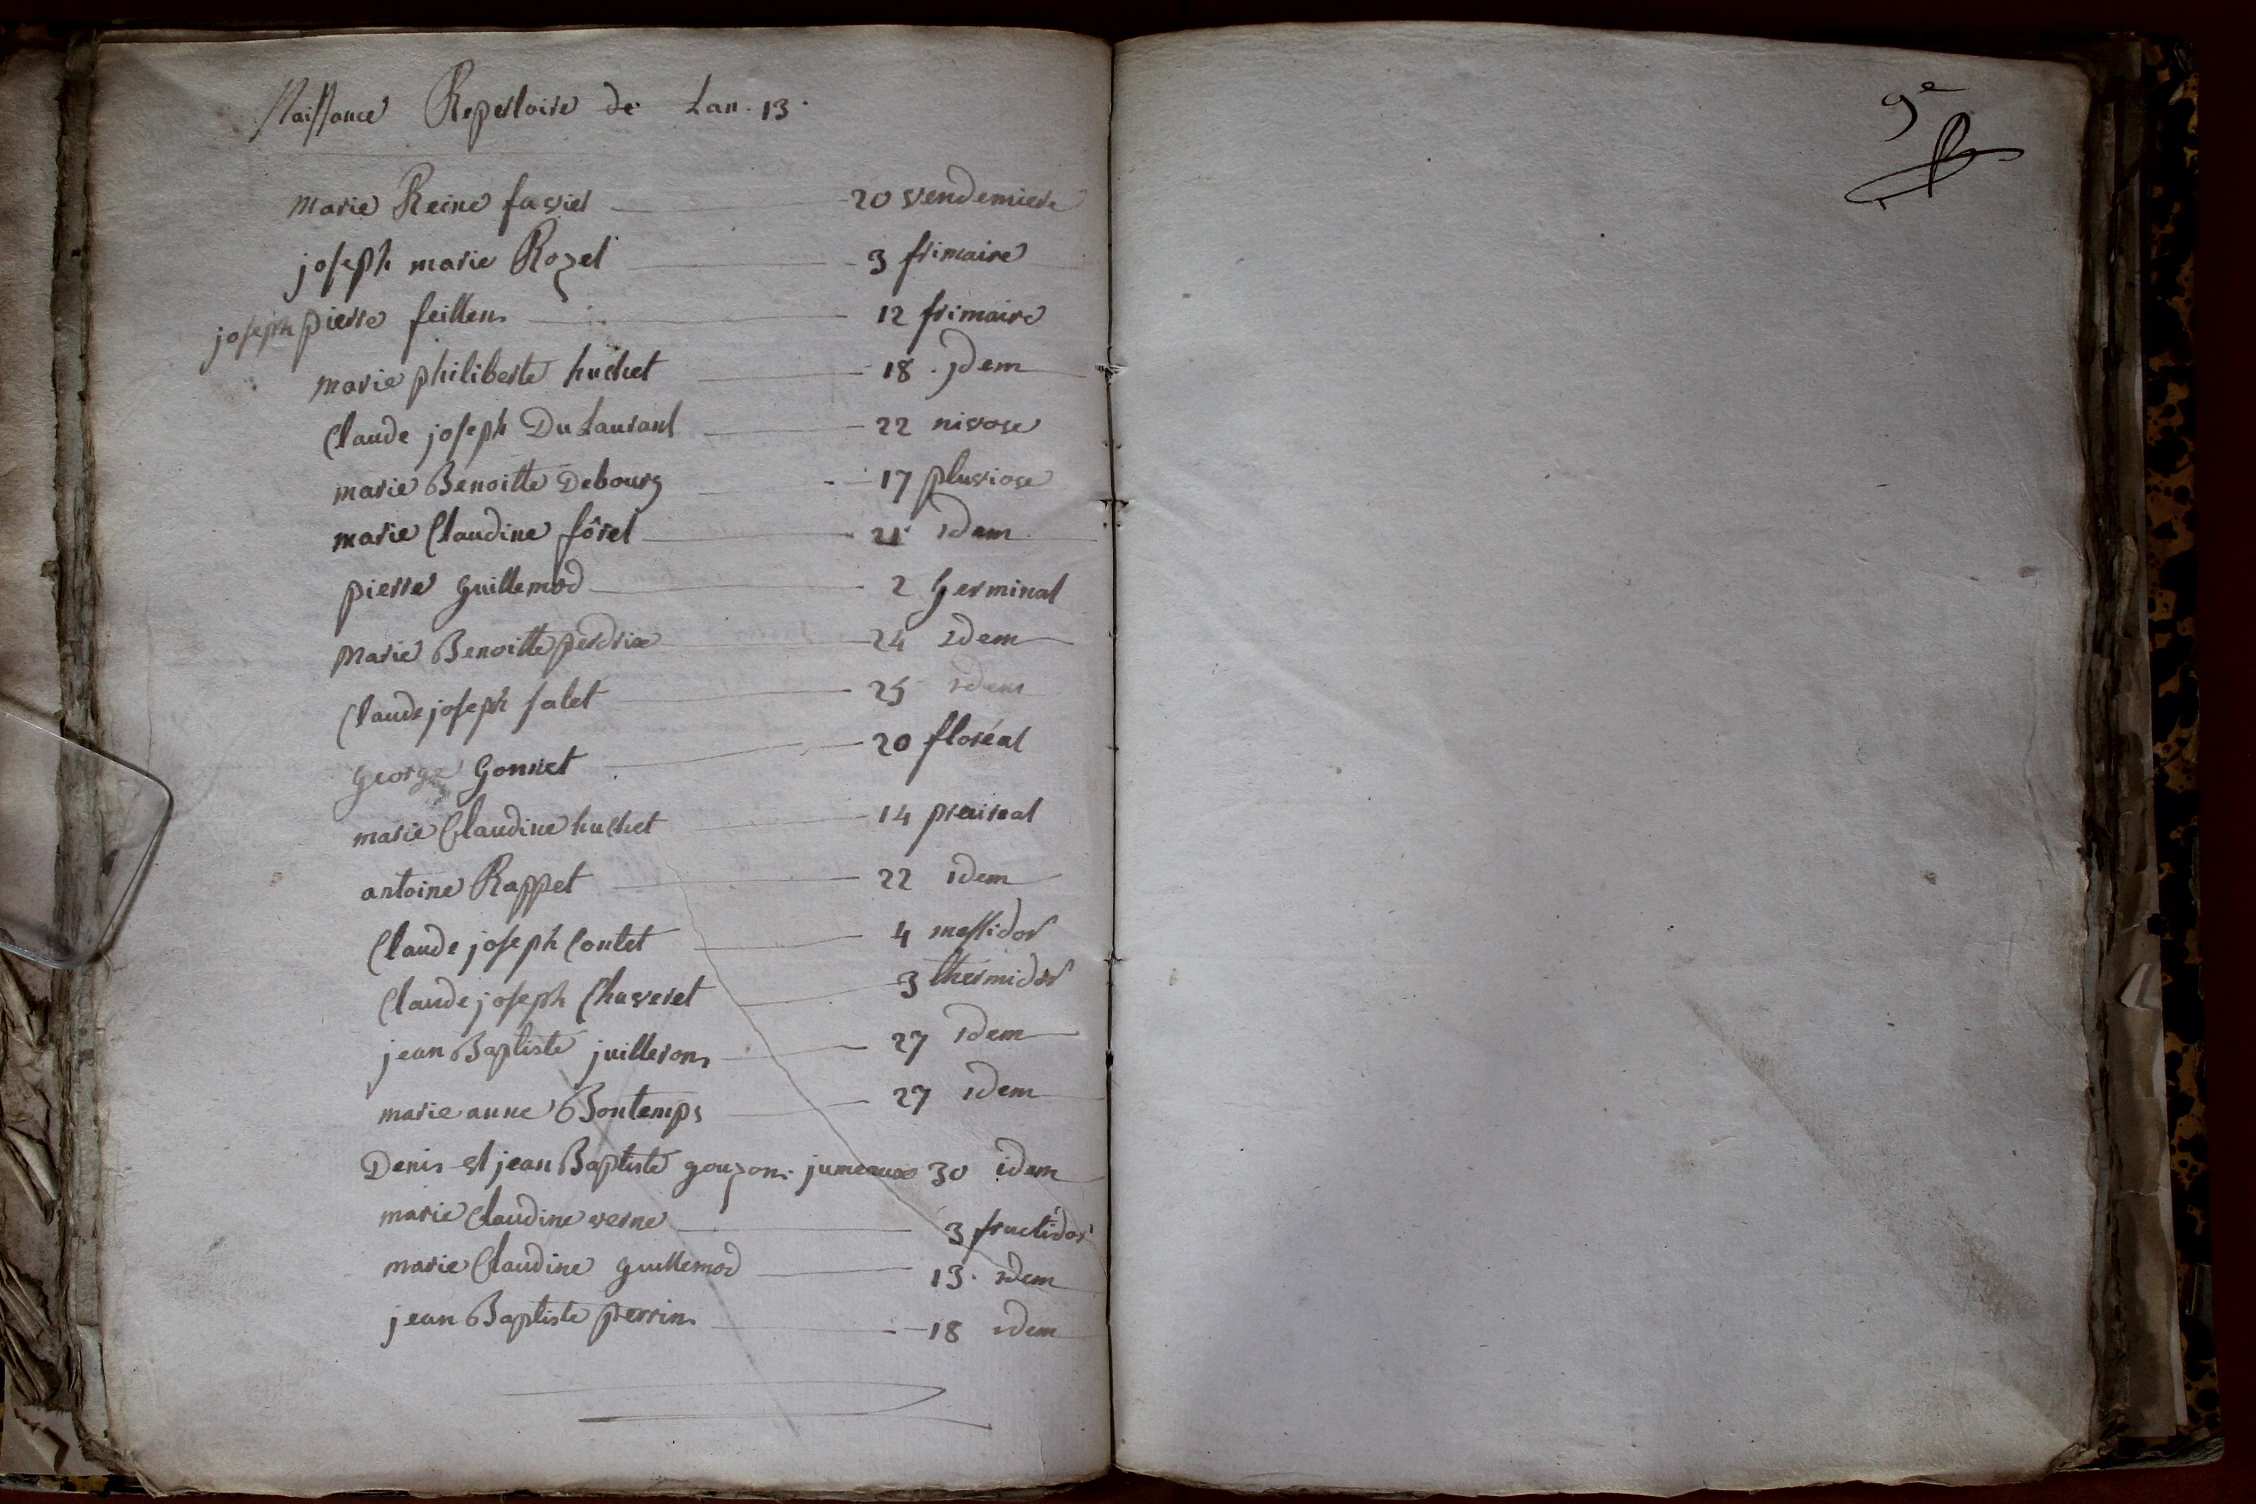 Naissance Repertoire de Lan. 13.
marie Reine favier 20 vendemiere
joseph marie Rozet 3 frimaire
joseph pierre feillens 12 frimaire
marie philiberte huchet 18. jdem
Claude joseph Du Laurant 22 nivose
marie Benoitte Debourg 17 pluviose
marie Claudine fôret 21 idem
pierre guillemod 2 germinal
marie Benoitte perdrix 24 idem
Claude joseph falet 25 idem
george Gonnet 20 floréal
marie Claudine huchet 14 prairial
antoine Rappet 22 idem
Claude joseph Contet 4 messidor
Claude joseph Chaveret 3 thermidor
jean Baptiste juillerons 27 idem
marie anne Bontemps 27 idem
Denis et jean Baptiste gouzon. jumeaux 30 idem
marie Claudine verne 3 fructidor
marie Claudine guillemod 13. idem
jean Baptiste perrin 18 idem
9e